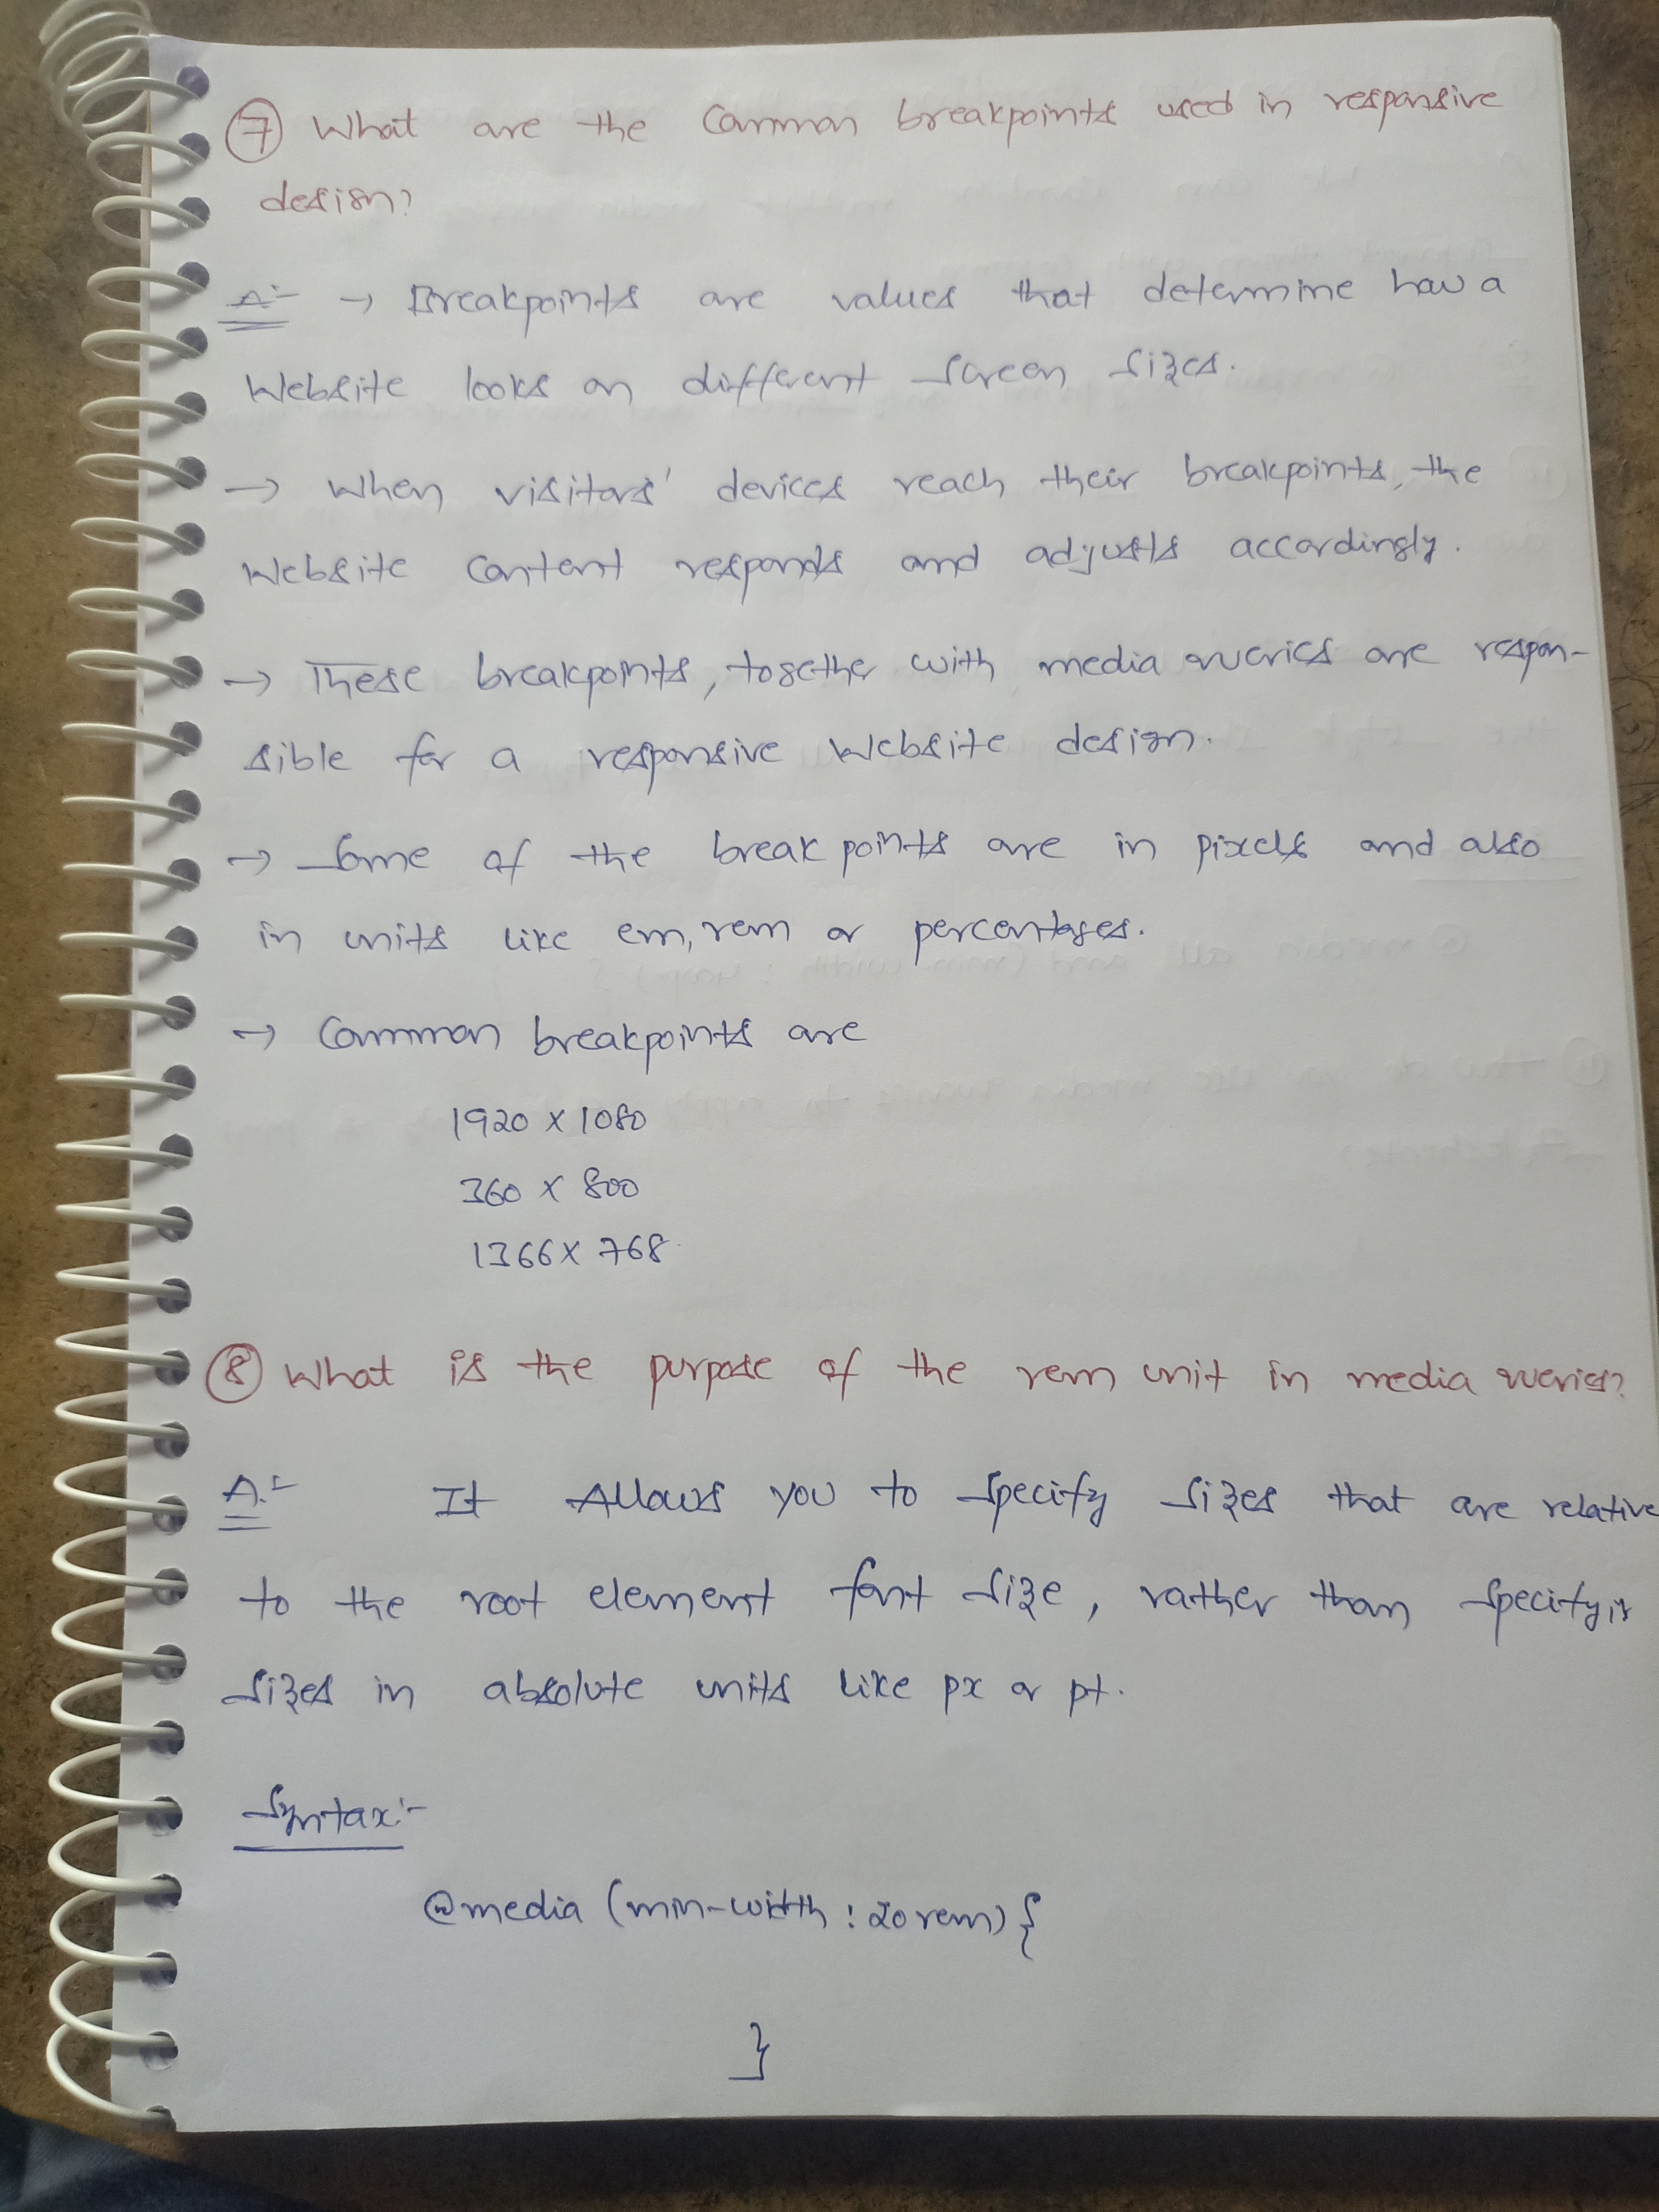 ⑦ What are the Common breakpoints used in responsive
design?
A:- → Breakpoints are values that determine how a
Website looks on different Screen Sizes.
→ When visitors' devices reach their breakpoints, the
Website Content responds and adjusts accordingly.
→ These breakpoints, together with media queries are respon-
sible for a responsive Website design.
→ Some of the break points are in pixels and also
in units like em, rem or percentages.
→ Common breakpoints are
1920 x 1080
360 x 800
1366 x 768
⑧ What is the purpose of the rem unit in media queries?
A:- It Allows you to Specify Sizes that are relative
to the root element font Size, rather than
Sizes in absolute units like px or pt.
Syntax:-
@media (min-width : 20rem) {
}